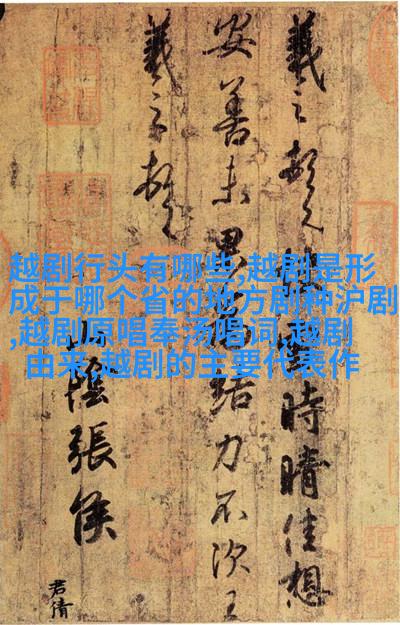 羲之頓首快雪時晴佳想
安善未果為結力不次王
羲之頓首
山陰張侯
君倩
越剧行头有哪些,越剧是形
成于哪个省的地方剧种沪剧
,越剧原唱奉汤唱词,越剧
由来,越剧的主要代表作